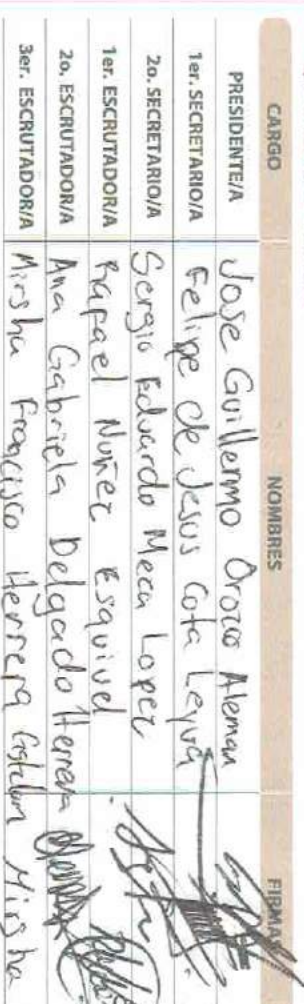 CARGO NOMBRES FIRMAS
PRESIDENTE/A Jose Guillermo Orozco Aleman
1er. SECRETARIO/A Felipe de Jesus Cota Leyva
2o. SECRETARIO/A Sergio Eduardo Meza Lopez
1er. ESCRUTADOR/A Rafael Nuñez Esquivel
2o. ESCRUTADOR/A Ana Gabriela Delgado Herrera
3er. ESCRUTADOR/A Mirsha Francisco Herrera Mirsha